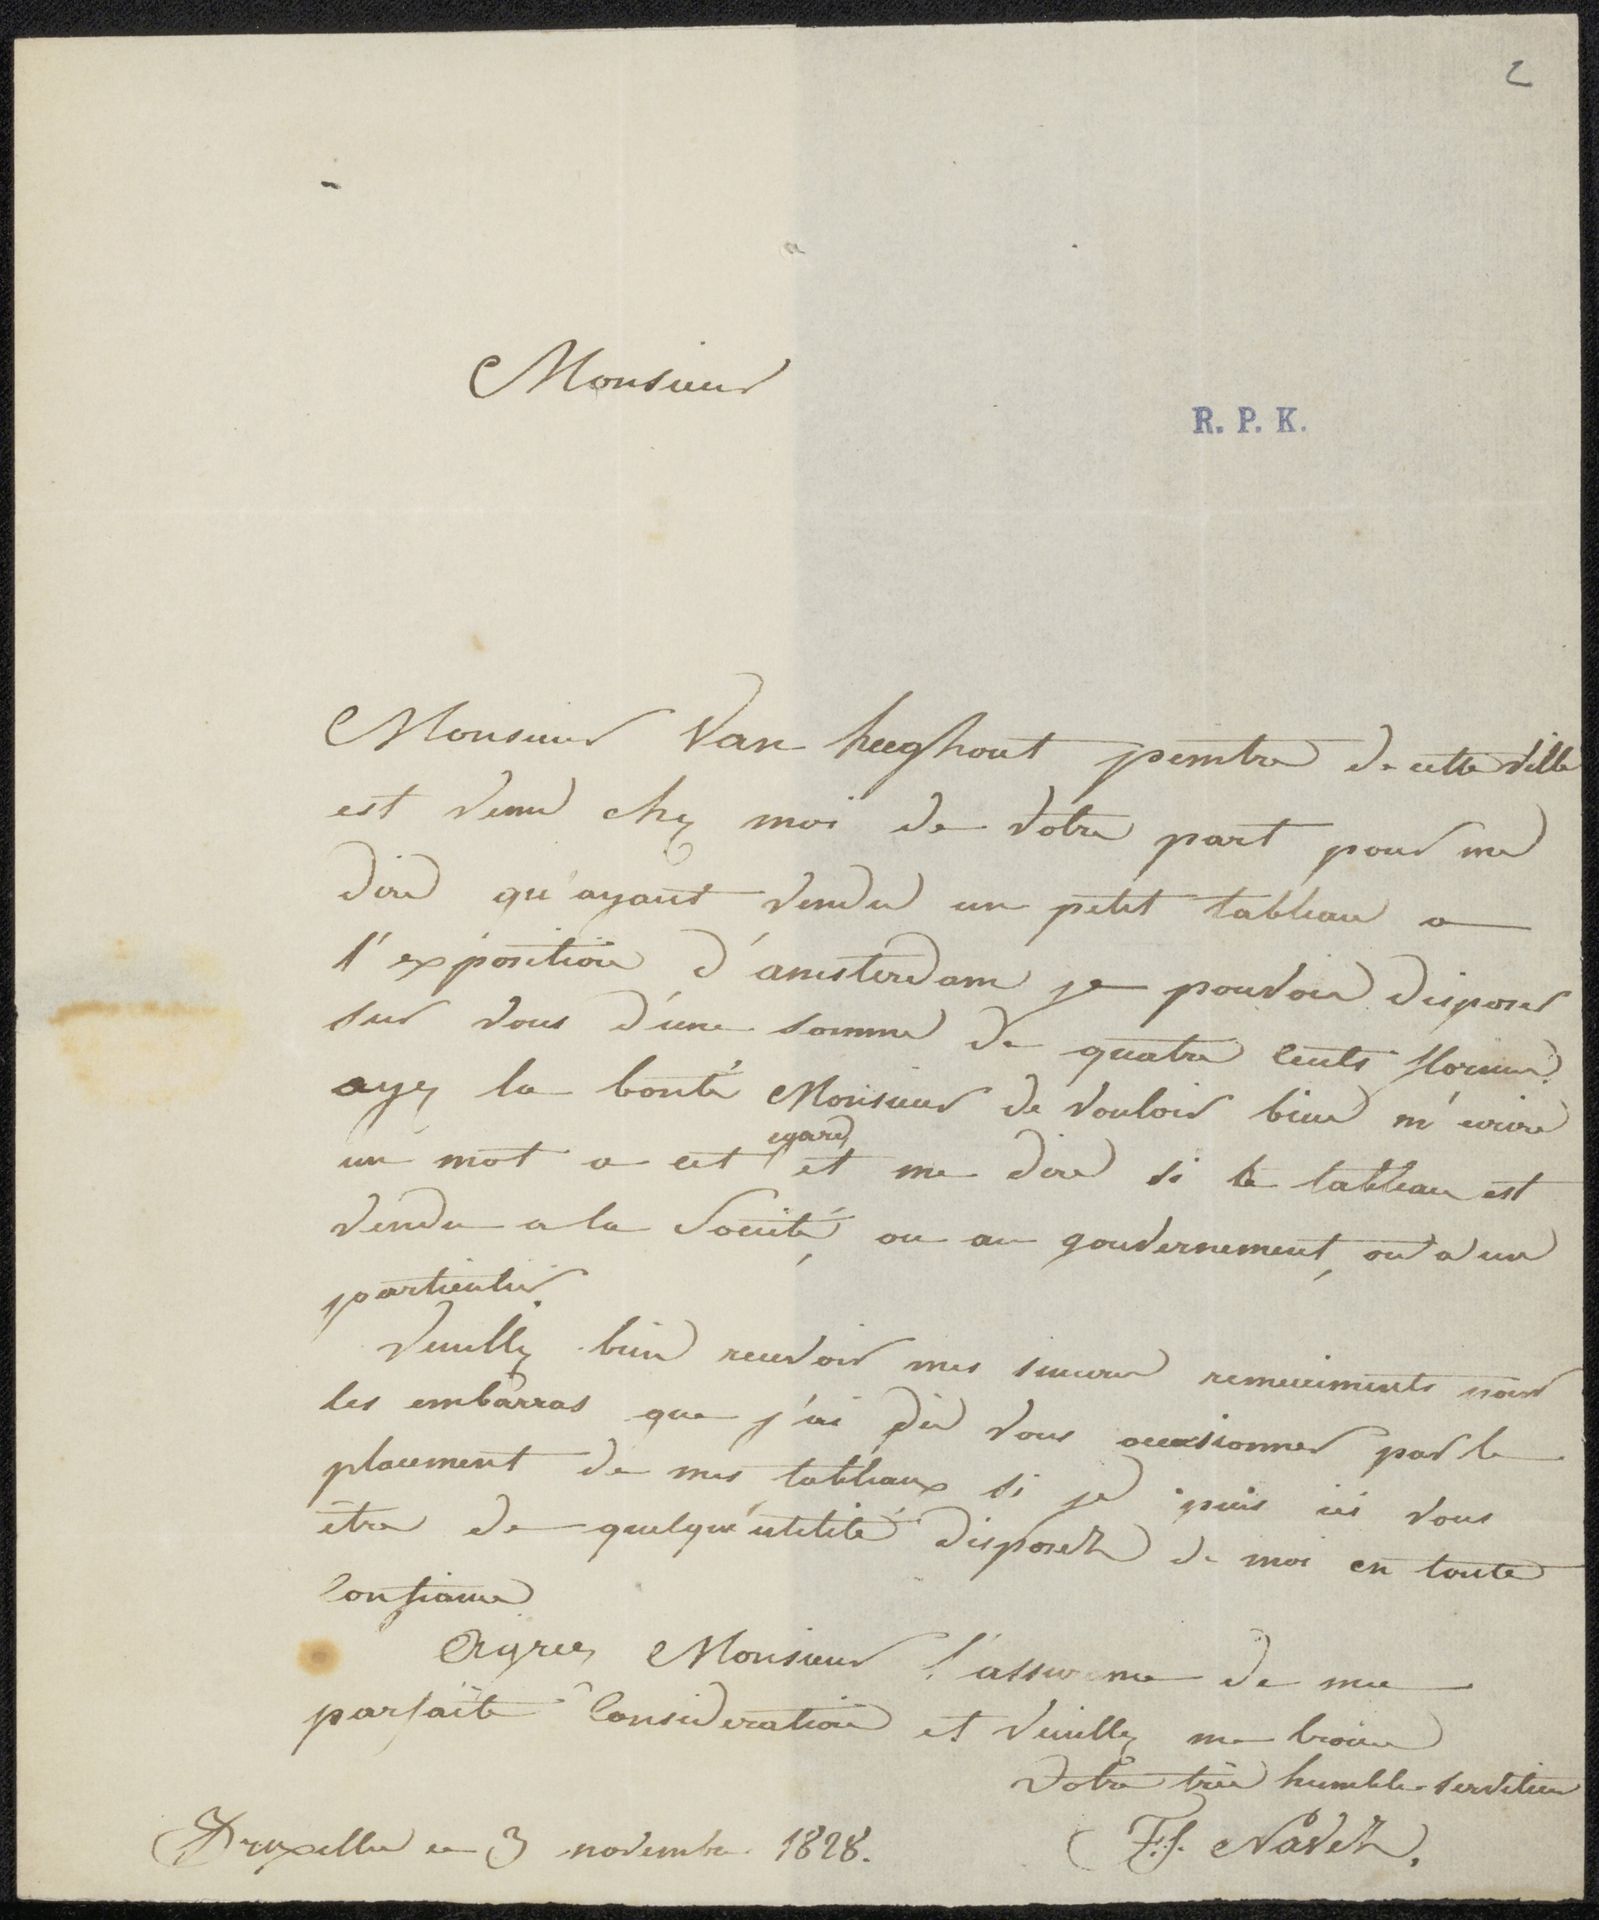 2
Monsieur
R. P. K.
Monsieur Van heeghout peintre de cette ville
est venu chez moi de votre part pour me
dire qu'ayant vendu un petit tableau a
l'exposition d'amsterdam je pouvois disposer
sur vous d'une somme de quatre cents florins.
ayez la bonté Monsieur de vouloir bien m'ecrire
un mot a cet egard et me dire si le tableau est
vendu a la Société, ou au gouvernement, ou a un
particulier.
Veuillez bien recevoir mes sinceres remerciments pour
les embarras que j'ai du vous occasionner par le
placement de mes tableaux si je puis ici vous
être de quelqu'utilité disposez de moi en toute
Confiance
Agreez Monsieur l'assurance de ma
parfaite Consideration et veuillez me croire
Votre très humble serviteur
Bruxelles ce 3 novembre 1828.
F. J. Navez.